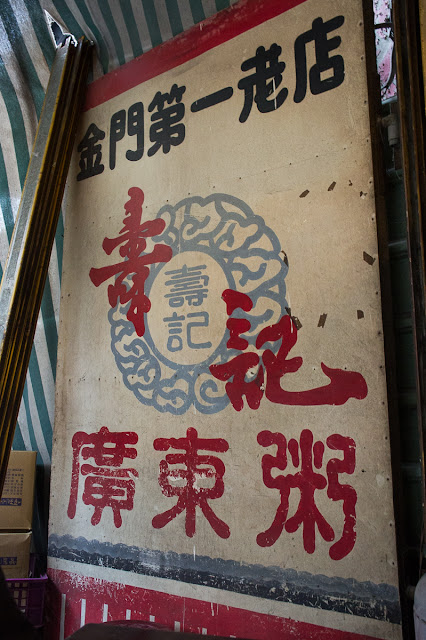 金門第一老店
壽記
壽
記
廣東粥